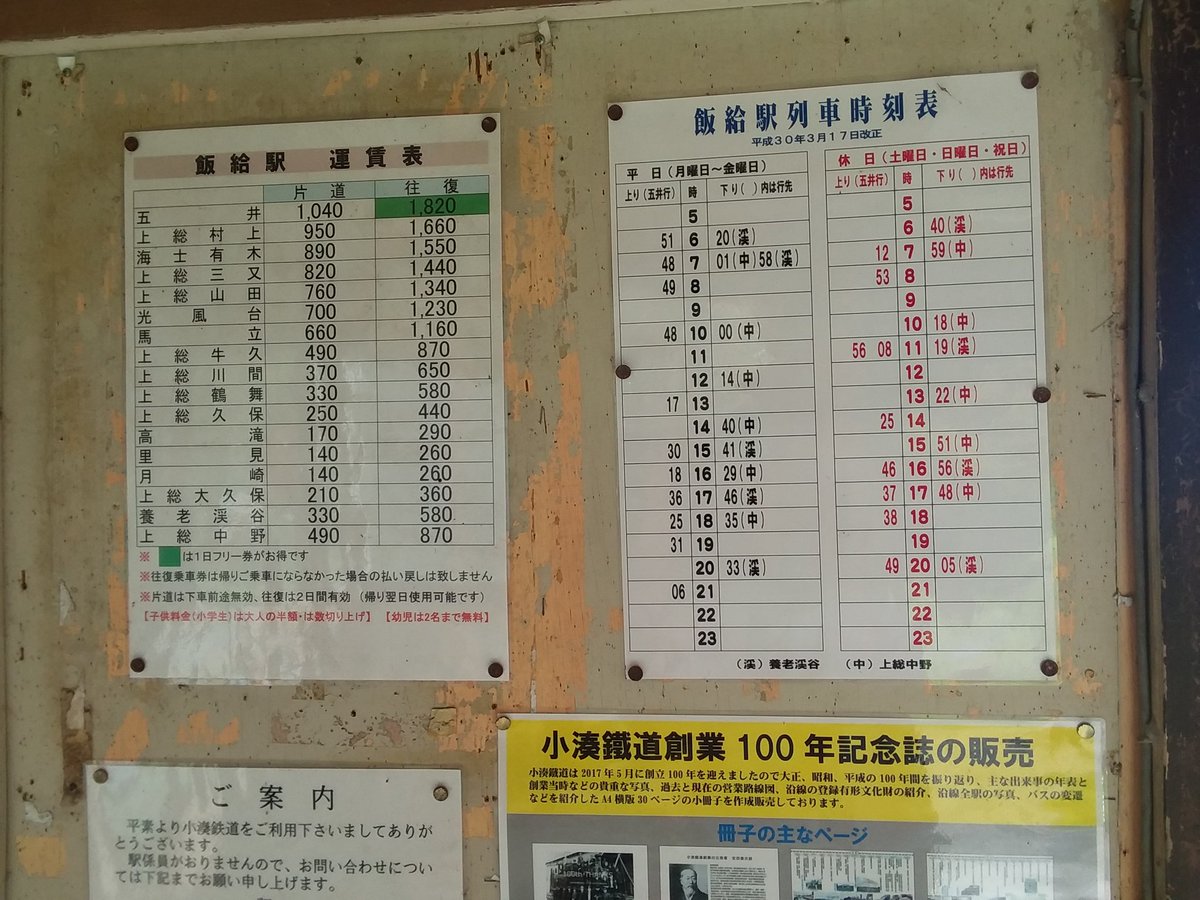 飯給駅 運賃表
片道 往復
五井 1,040 1,820
上総村上 950 1,660
海士有木 890 1,550
上総三又 820 1,440
上総山田 760 1,340
光風台 700 1,230
馬立 660 1,160
上総牛久 490 870
上総川間 370 650
上総鶴舞 330 580
上総久保 250 440
高滝 170 290
里見 140 260
月崎 140 260
上総大久保 210 360
養老渓谷 330 580
上総中野 490 870
※ は1日フリー券がお得です
※往復乗車券は帰りご乗車にならなかった場合の払い戻しは致しません
※片道は下車前途無効、往復は2日間有効 (帰り翌日使用可能です)
【子供料金(小学生)は大人の半額・は数切り上げ】 【幼児は2名まで無料】
飯給駅列車時刻表
平成30年3月17日改正
平 日 (月曜日~金曜日)
上り(五井行) 時 下り( )内は行先
5
51 6 20(渓)
48 7 01(中)58(渓)
49 8
9
48 10 00(中)
11
12 14(中)
17 13
14 40(中)
30 15 41(渓)
18 16 29(中)
36 17 46(渓)
25 18 35(中)
31 19
20 33(渓)
06 21
22
23
休 日 (土曜日・日曜日・祝日)
上り(五井行) 時 下り( )内は行先
5
6 40(渓)
12 7 59(中)
53 8
9
10 18(中)
56 08 11 19(渓)
12
13 22(中)
25 14
15 51(中)
46 16 56(渓)
37 17 48(中)
38 18
19
49 20 05(渓)
21
22
23
(渓)養老渓谷 (中)上総中野
ご案内
平素より小湊鉄道をご利用下さいましてありが
とうございます。
駅係員がおりませんので、お問い合わせについ
ては下記までお願い申し上げます。
小湊鐵道創業100年記念誌の販売
小湊鐵道は2017年5月に創立100年を迎えましたので大正、昭和、平成の100年間を振り返り、主な出来事の年表と
創業当時などの貴重な写真、過去と現在の営業路線図、沿線の登録有形文化財の紹介、沿線全駅の写真、バスの変遷
などを紹介したA4横版30ページの小冊子を作成販売しております。
冊子の主なページ